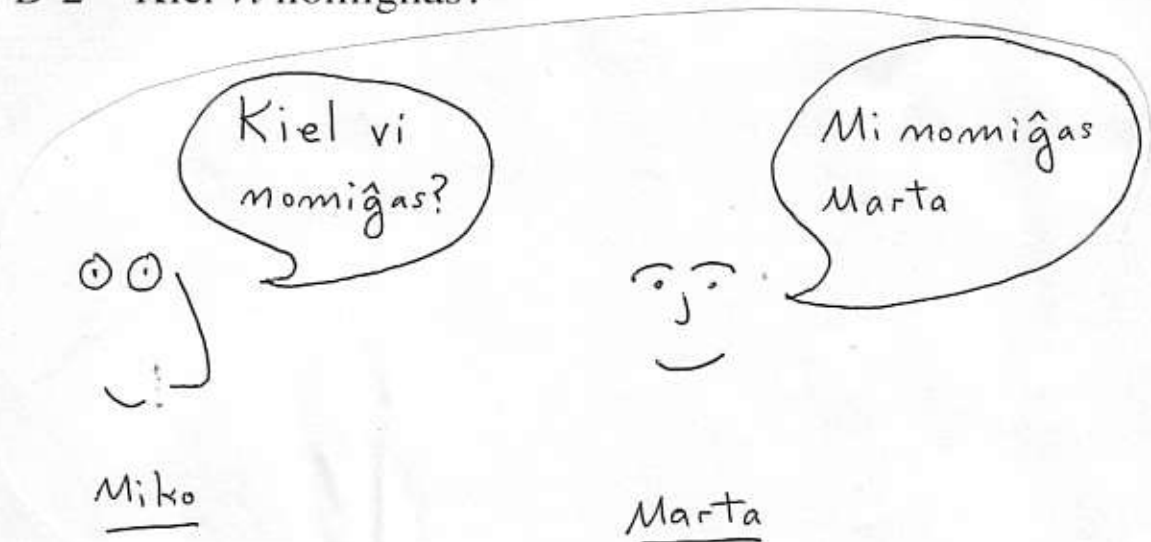 Kiel vi
nomiĝas?
Mi nomiĝas
Marta
Miko
Marta